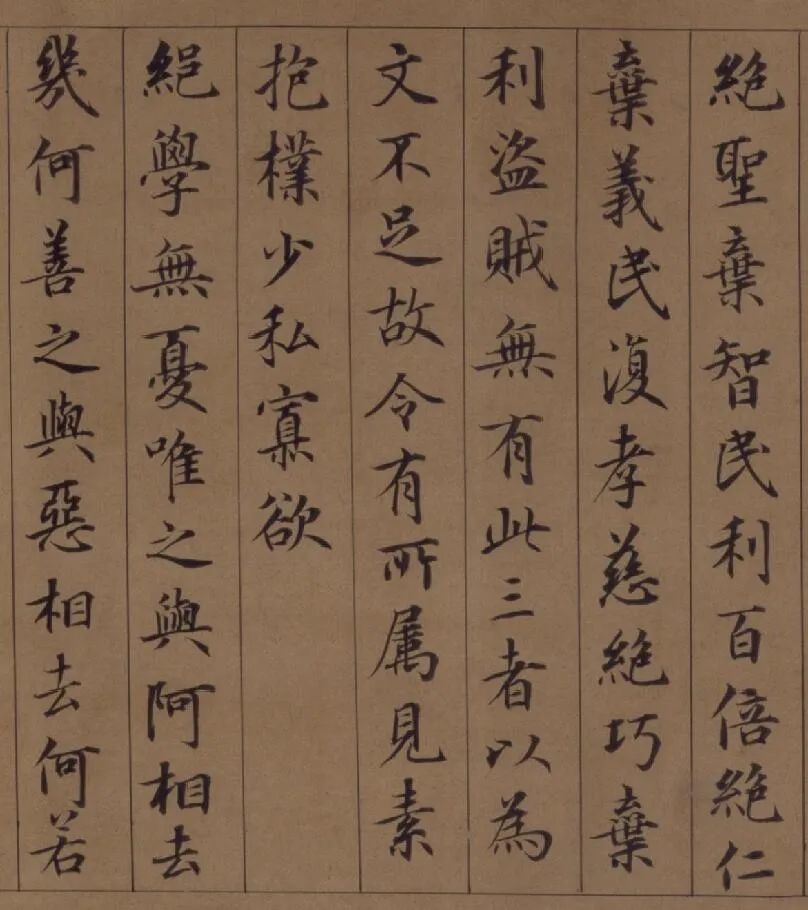 絶聖棄智民利百倍絶仁
棄義民復孝慈絶巧棄
利盜賊無有此三者以為
文不足故令有所属見素
抱樸少私寡欲
絕學無憂唯之與阿相去
幾何善之與惡相去何若